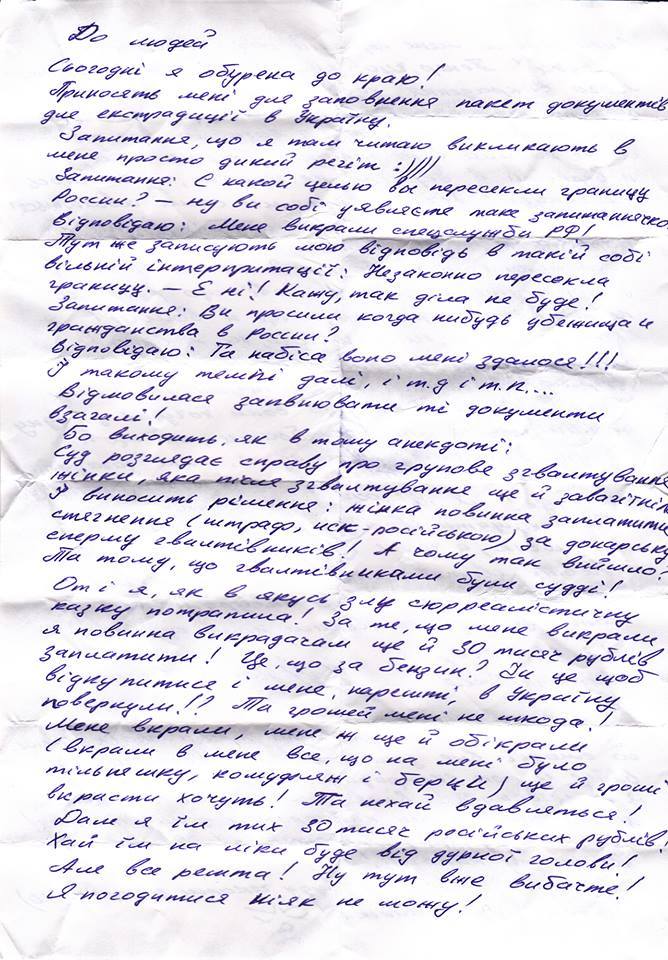 До людей
Сьогодні я обурена до краю!
Приносять мені для заповнення пакет документів
для екстрадиції в Україну.
Запитання, що я там читаю викликають в
мене просто дикий регіт :)))))
Запитання: С какой целью вы пересекли границу
России? — ну ви собі уявляєте таке запитаннячко.
Відповідаю: Мене викрали спецслужби РФ!
Тут же записують мою відповідь в такій собі
вільній інтерпритації: Незаконно пересекла
границу. — Е ні! Кажу, так діла не буде!
Запитання: Ви просили когда нибудь убежища и
гражданства в России?
Відповідаю: Та набіса воно мені здалося!!!
І такому темпі далі, і т.д і т.п....
Відмовилася заповнювати ті документи
взагалі!
Бо виходить, як в тому анекдоті:
Суд розглядає справу про групове згвалтування
жінки, яка після згвалтування ще й завагітніла
І виносить рішення: жінка повинна заплатити
стягнення (штраф, иск-російською) за донорську
сперму гвалтівників! А чому так вийшло?
Та тому, що гвалтівниками були судді!
От і я, як в якусь злу сюрреалістичну
казку потрапила! За те, що мене викрали
я повинна викрадачам ще й 30 тисяч рублів
заплатити! Це, що за бензин? Чи це щоб
відкупитися і мене, нарешті, в Україну
повернули!? Та грошей мені не шкода!
Мене вкрали, мене ж ще й обікрали
(вкрали в мене все, що на мені було
тільняшку, комуфляж і берци) ще й гроші
вкрасти хочуть! Та нехай вдавляться!
Дам я їм тих 30 тисяч російських рублів!
Хай їм на ліки буде від дурної голови!
Але все решта! Ну тут вже вибачте!
Я погодитися ніяк не можу!